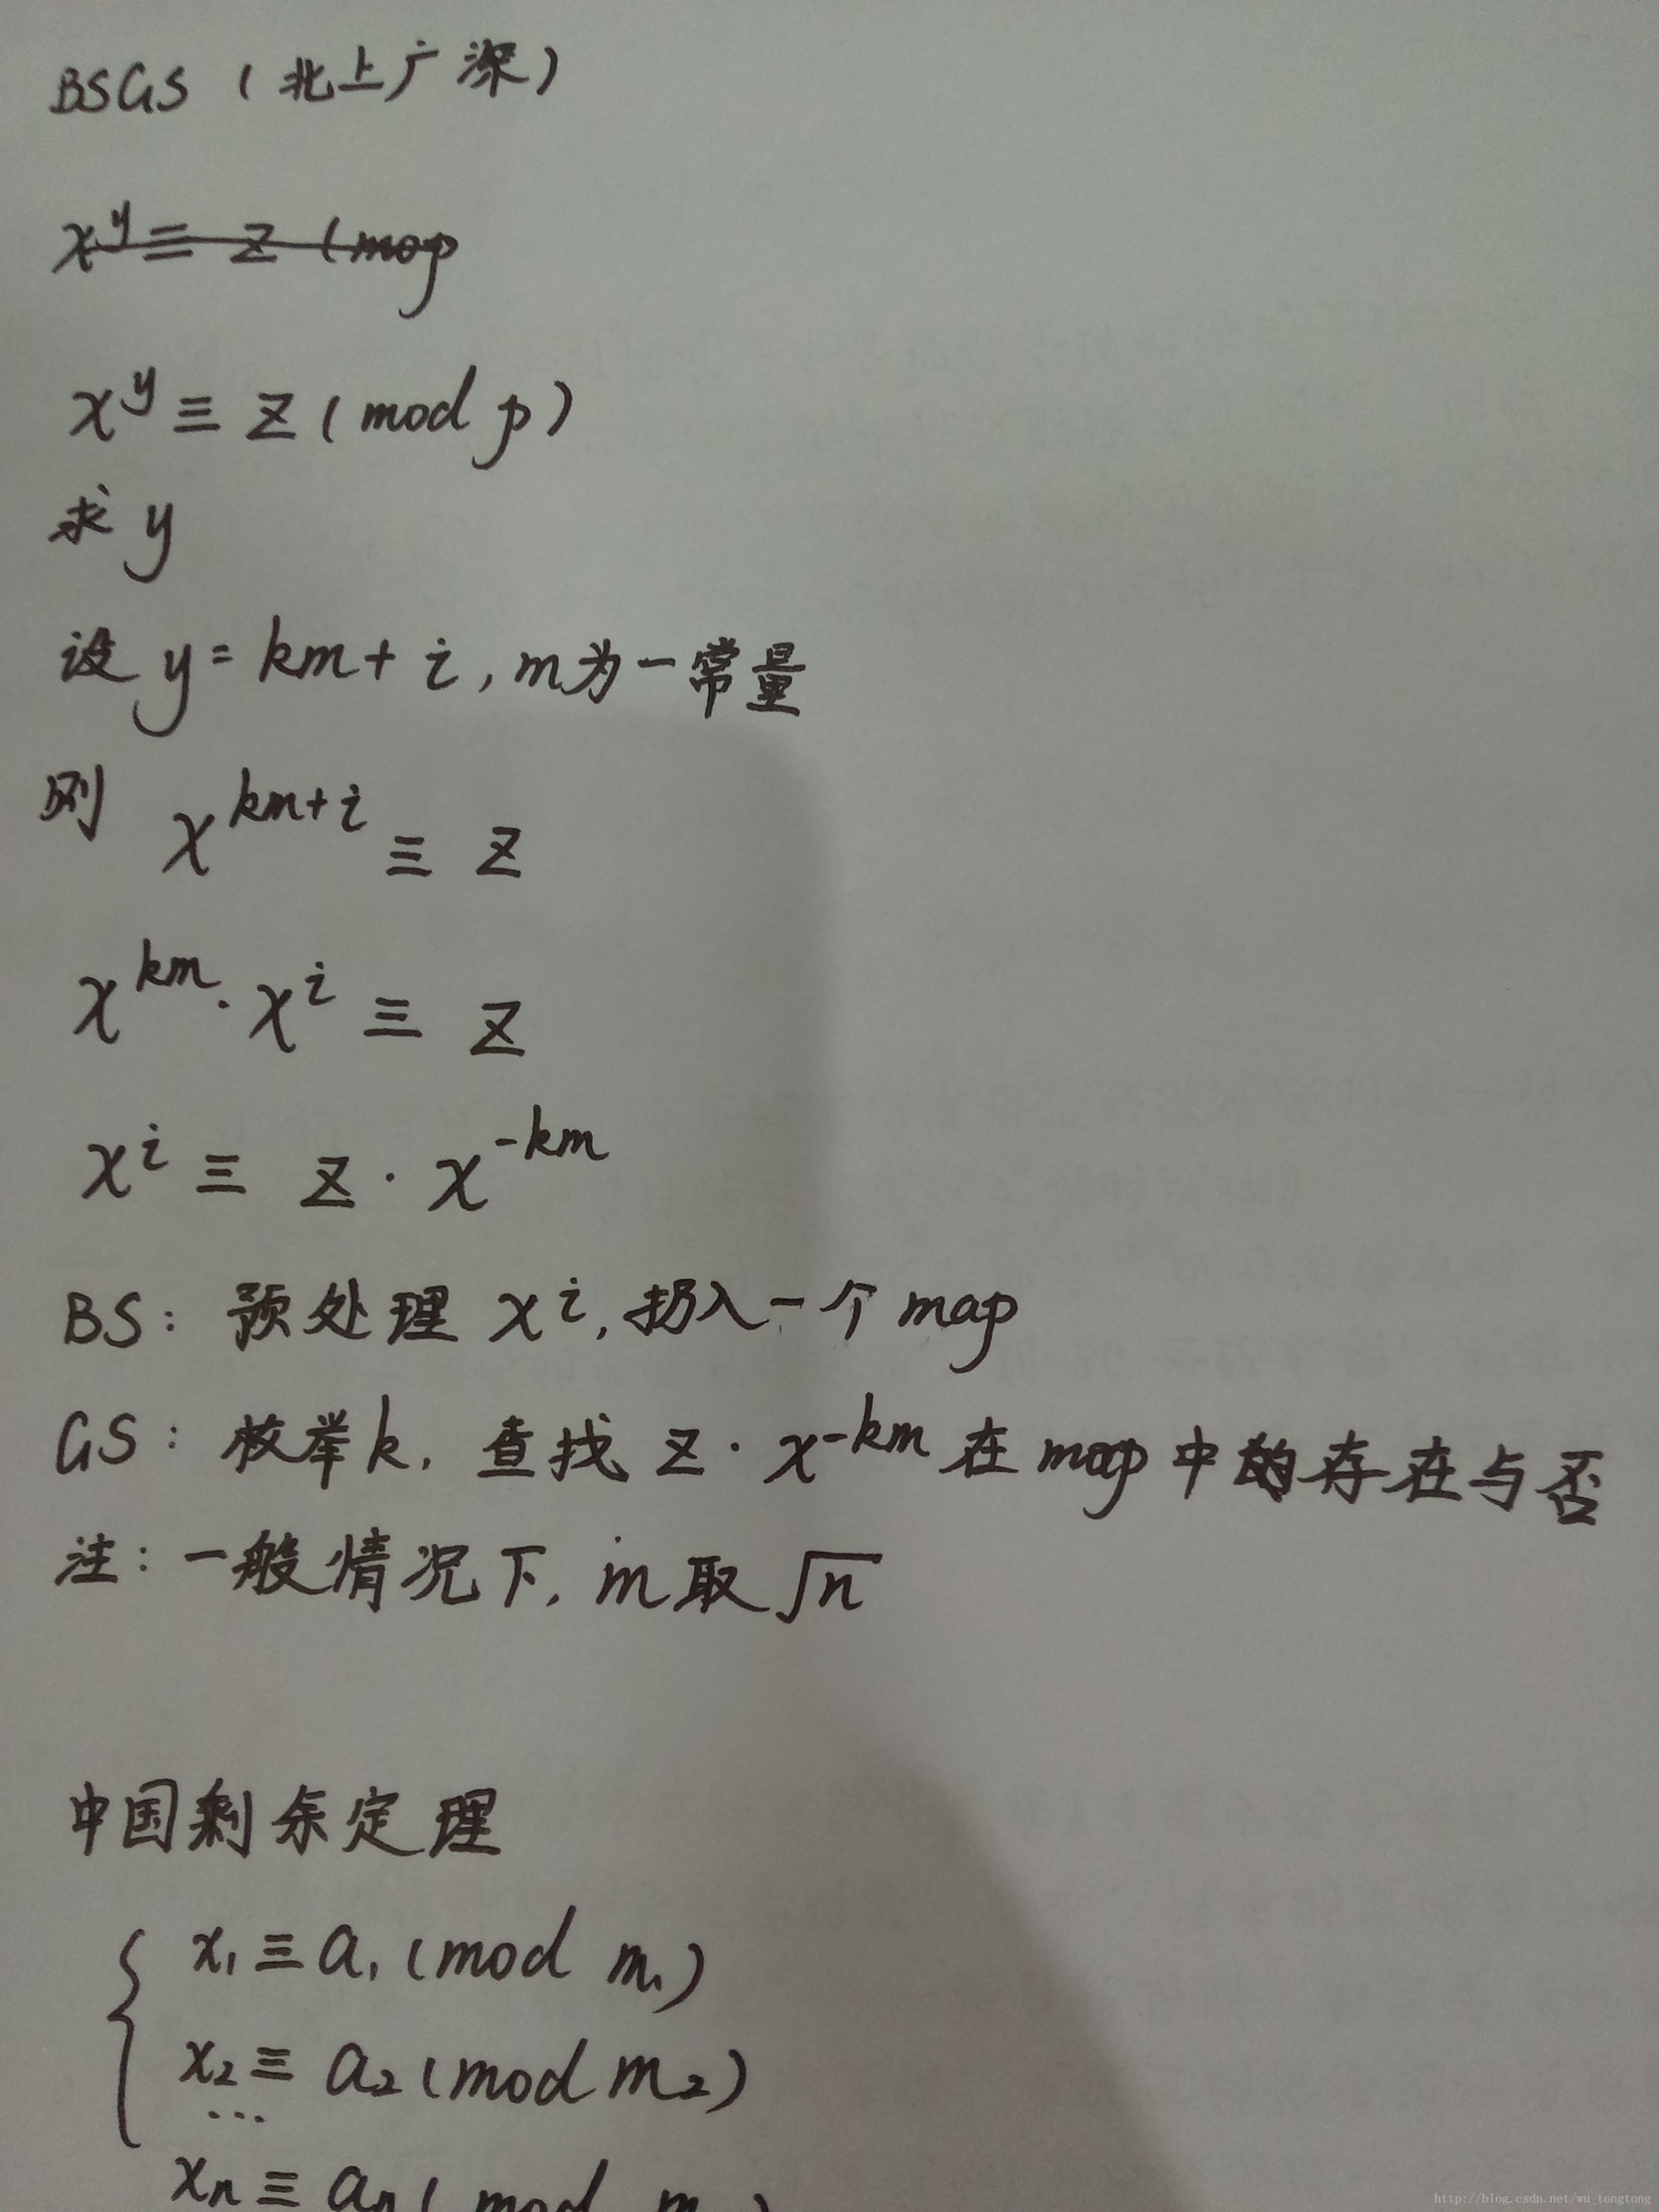 BSGS (北上广深)
x^y ≡ z (mop
x^y ≡ z (mod p)
求 y
设 y = km + i, m为一常量
则 x^{km+i} ≡ z
x^{km} · x^i ≡ z
x^i ≡ z · x^{-km}
BS: 预处理 x^i, 扔入一个 map
GS: 枚举k, 查找 z · x^{-km} 在 map 中的存在与否
注: 一般情况下, m 取 √n
中国剩余定理
x₁ ≡ a₁ (mod m₁)
x₂ ≡ a₂ (mod m₂)
...
xₙ ≡ aₙ (mod mₙ)
http://blog.csdn.net/wu_tongtong